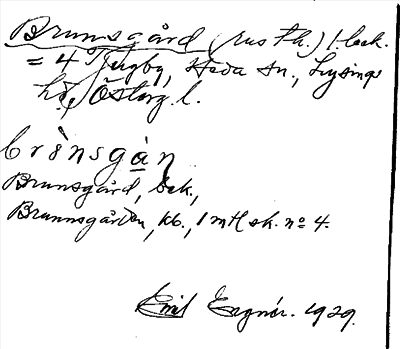 Brunsgård (rusth.) l. bek.
= 4 Tjugby, Heda sn., Lysings
hd, Österg. l.
brὼnsgan
Brunsgård, bek.,
Brunnsgården, kb., 1 mtl sk. nº 4.
Emil Ergnér. 1929.